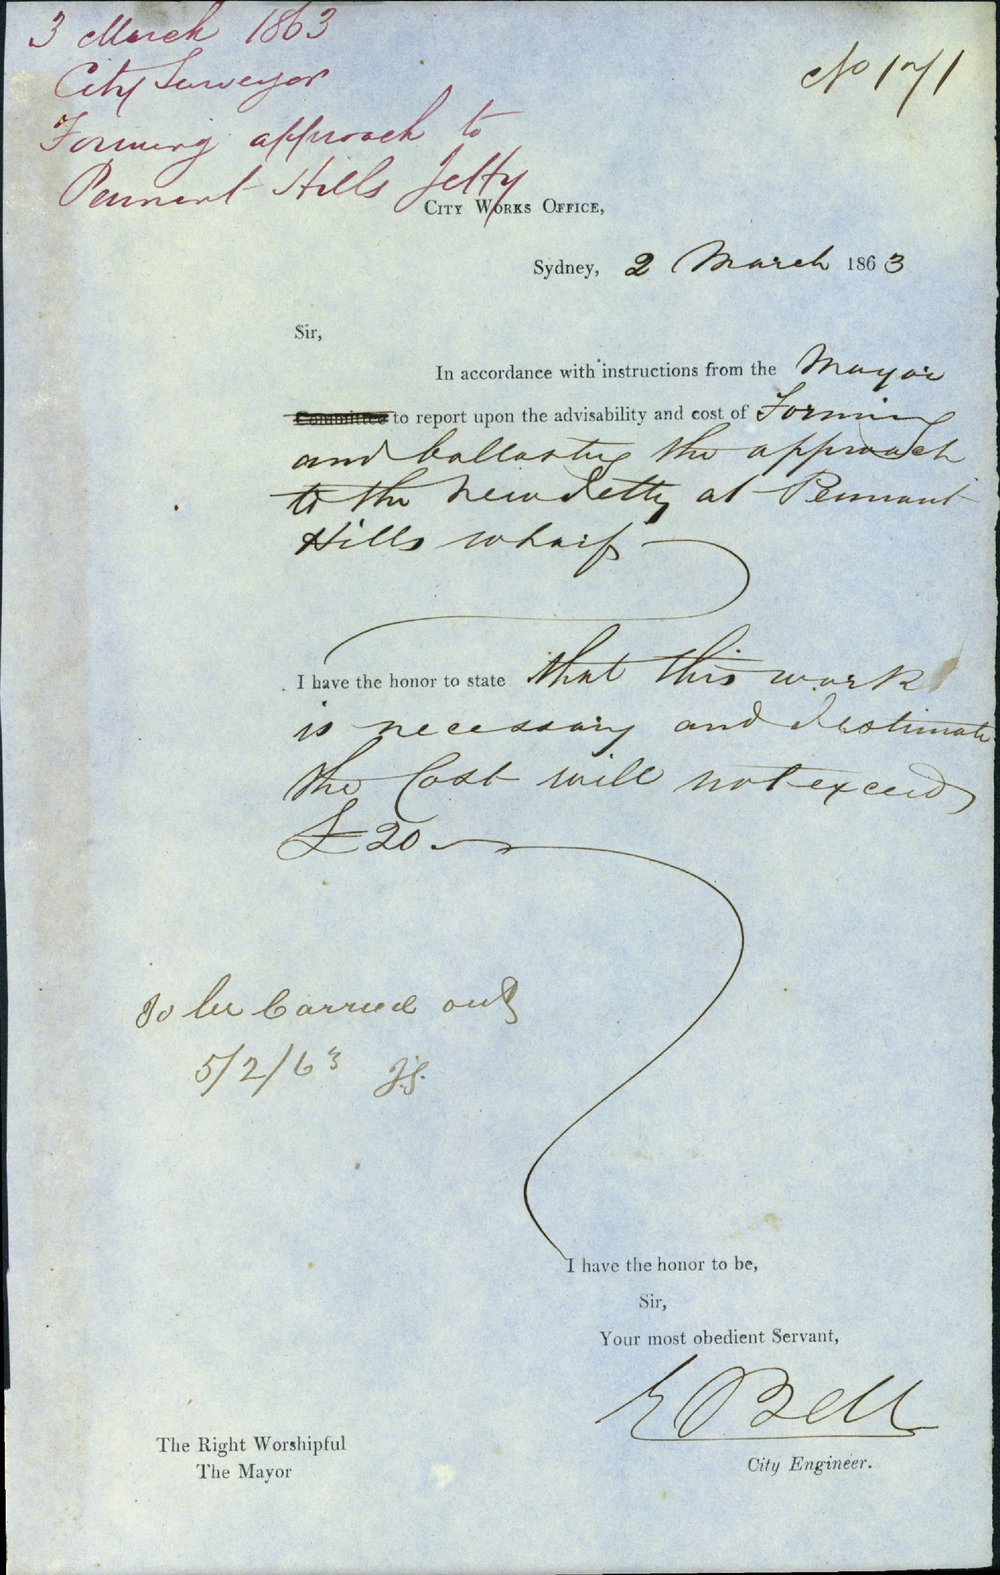 3 March 1863
City Surveyor
Forming approach to
Pennant Hills Jetty
No 171
CITY WORKS OFFICE,
Sydney, 2 March 1863
Sir,
In accordance with instructions from the Mayor
Committee to report upon the advisability and cost of Forming
and ballasting the approach
to the New Jetty at Pennant
Hills wharf
I have the honor to state that this work
is necessary and I estimate
the Cost will not exceed
£20
To be Carried out
5/2/63 J.S.
I have the honor to be,
Sir,
Your most obedient Servant,
E Bell
City Engineer.
The Right Worshipful
The Mayor